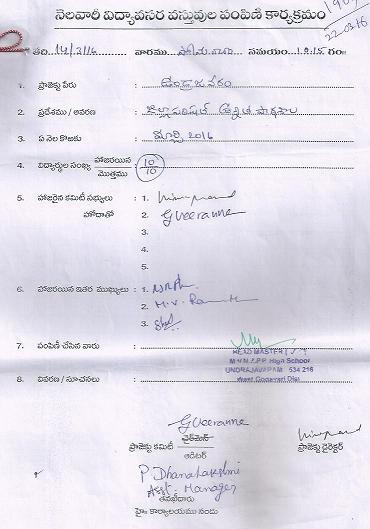 నెలవారీ విద్యావసర వస్తువుల పంపిణీ కార్యక్రమం
22-03-16
తేది 14/3/16 వారము సోమవారం సమయం 12.15 గం॥
1. ప్రాజెక్టు పేరు : ఉండ్రాజవరం
2. ప్రదేశము / ఆవరణ : జిల్లా పరిషత్ ఉన్నత పాఠశాల
3. ఏ నెల కొఱకు : మార్చి 2016
4. విద్యార్థుల సంఖ్య హాజరయిన / మొత్తము : 10/10
5. హాజరైన కమిటీ సభ్యులు : 1.
హోదాతో 2. G Veeranna
3.
4.
5.
6. హాజరయిన ఇతర ముఖ్యులు : 1.
2. M.V.
3.
7. పంపిణీ చేసిన వారు :
HEAD MASTER
High School
UNDRAJAVARAM 534 216
West Godavari Dist
8. వివరణ / సూచనలు :
G Veeranna
ప్రాజెక్టు కమిటీ ఛైర్‌మెన్ ప్రాజెక్టు డైరెక్టర్
ఆడిటర్
P. Dhanalakshmi
Asst. Manager
తనిఖీదారు
హై కార్యాలయము నందు